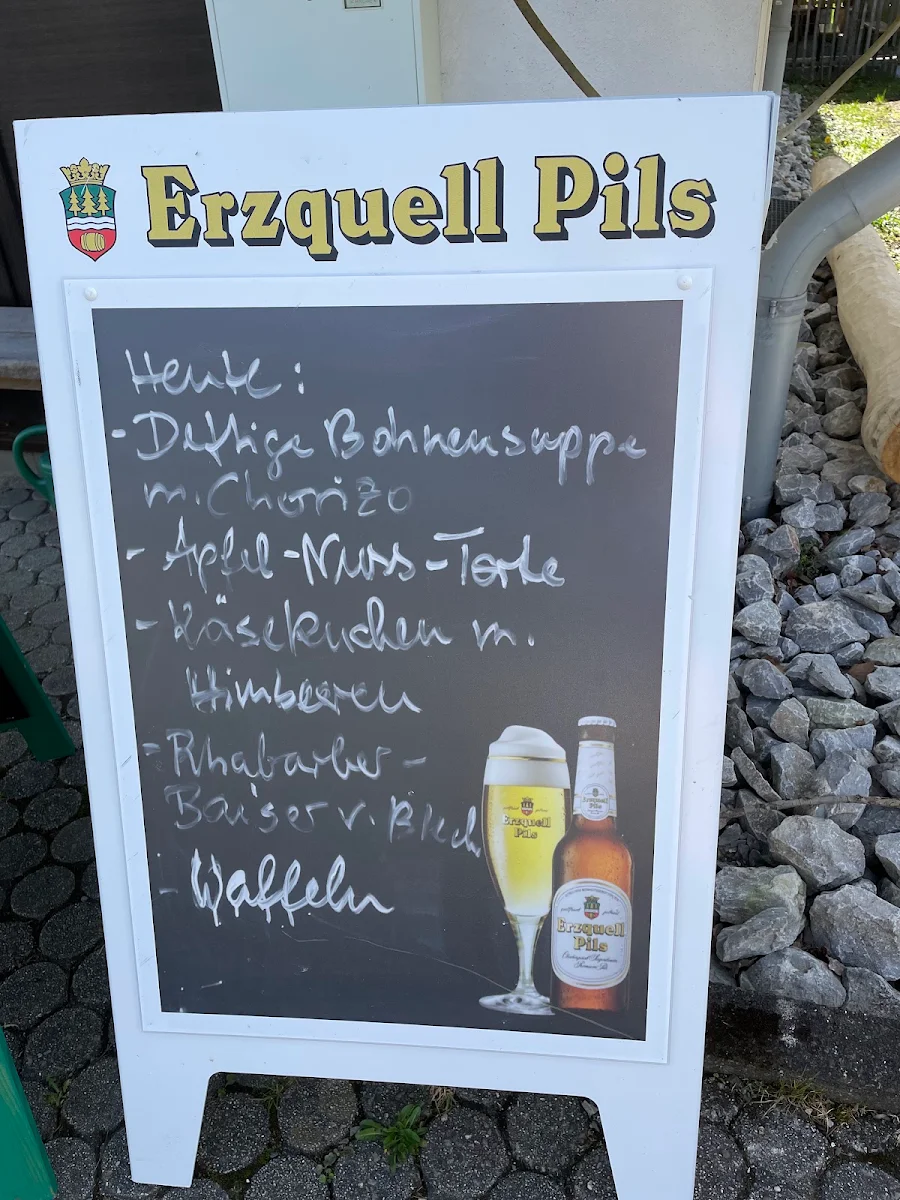 Erzquell Pils
Heute:
- Deftige Bohnensuppe
m. Chorizo
- Apfel-Nuss-Torte
- Käsekuchen m.
Himbeeren
- Rhabarber-
Baiser v. Blech
- Waffeln
Erzquell
Pils
Erzquell
Pils
Erzquell
Pils